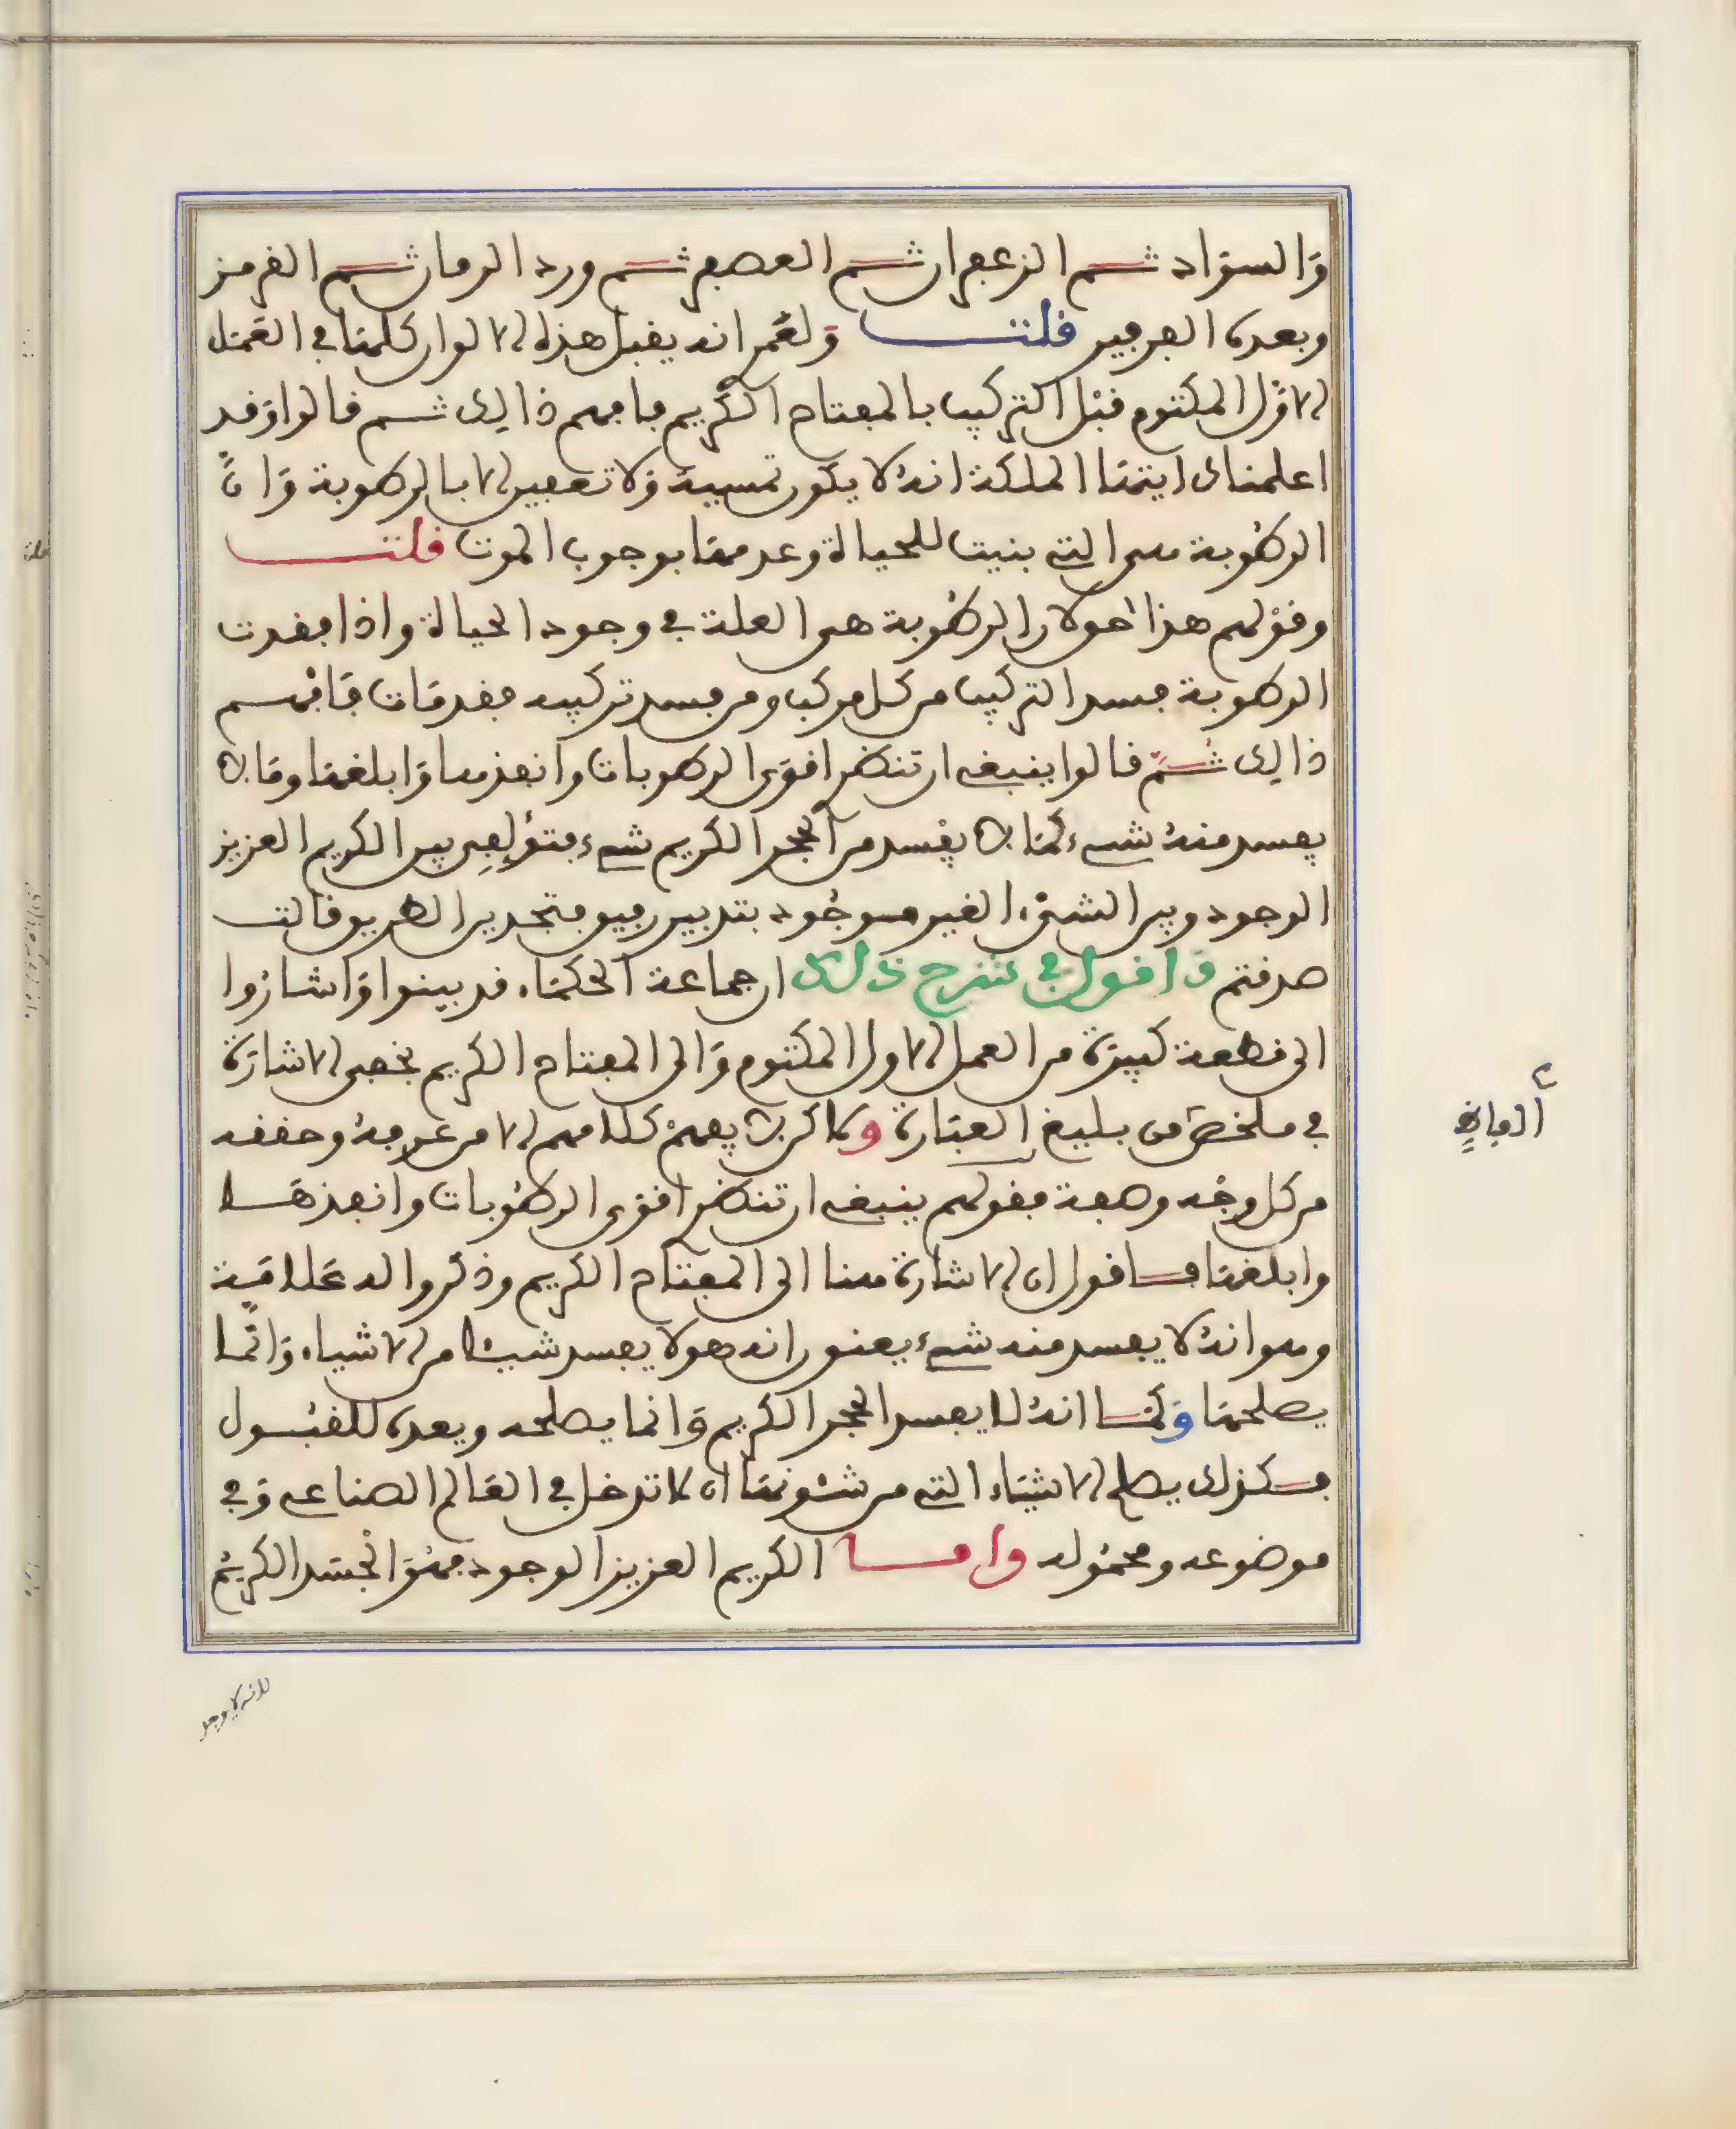 والسواد ثم الزعفران ثم العصفر ثم ورد الرمان ثم القرمز
وبعده الفرفير قلت ولعمر انه يقبل هذه الالوان كلها في العمل
الاول المكتوم قبل التركيب بالمفتاح الكريم فافهم ذالك ثم قالوا وقد
اعلمناك ايتها الملكة انه لا يكون تمسية ولا تعفين الا بالرطوبة وان
الرطوبة هي التي بنيت للحياة وعدمها بوجوب الموت قلت
وقولهم هذا حق لان الرطوبة هي العلة في وجود الحياة واذا فقدت
الرطوبة فسد التركيب من كل مركب ومن فسد تركيبه فقد مات فافهم
ذالك ثم قالوا ينبغي ان تنظر اقوى الرطوبات وانفذها وابلغها وما لا
يفسد منه شيء كما لا يفسد من الحجر الكريم شيء فتؤلف بين الكريم العزيز
الوجود وبين الشيء الغير موجود بتدبير رفيق فتجد بر الطريق قالت
صدقتم واقول في شرح ذلك ان جماعة الحكماء قد بينوا واشاروا
الى قطعة كبيرة من العمل الاول المكتوم والى المفتاح الكريم بخفي الاشارة
في ملخص من بليغ العبارة ولاكن لا يفهم كلامهم الا من عرفه وحققه
من كل وجه وصفة فقولهم ينبغي ان تنظر اقوى الرطوبات وانفذها
وابلغها فاقول ان الاشارة هنا الى المفتاح الكريم وذكروا له علامة
وهو انه لا يفسد منه شيء يعنون انه هو لا يفسد شيئا من الاشياء وانما
يصلحها وكما انه لا يفسد الحجر الكريم وانما يصلحه ويعده للقبول
فكذلك يصلح الاشياء التي من شئونها ان لا تدخل في العالم الصناعي وفي
موضوعه ومحموله واما الكريم العزيز الوجود فهو الجسد الكريم
الفاظ
لانه لا يوجد